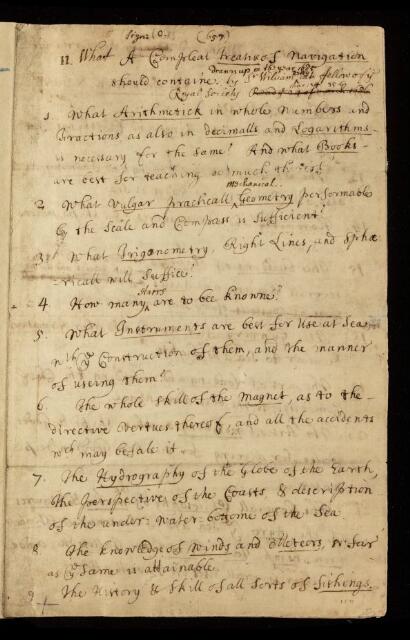 (657)
11. What A Compleat treatise of Navigation
drawn up in the year 1685
should containe. by Sr William Petty fellow of ye
Royal Society
1 What Arithmetick in whole Numbers and
Fractions as also in decimalls and Logarithms
is necessary for the same? And what Books
are best for teaching so much thereof?
mechanical
2 What Vulgar practicall Geometry performable
by the Scale and Compass is Sufficient?
3 What Trigonometry, Right Lines, and Sphæ
ricall will Suffice?
Starrs
4. How many are to bee Knowne?
5. What Instruments are best for Use at Sea,
wth ye Construction of them, and the manner
of useing them?
6. The whole Skill of the Magnet, as to the
directive Vertues thereof, and all the accidents
wch may befale it.
7. The Hydrography of the Globe of the Earth,
the perspective of the Coasts & description
of the under-water-bottome of the Sea
8 The Knowledge of Winds and Meteors, so far
as ye Same is attainable
9 The History & Skill of all Sorts of fishings.